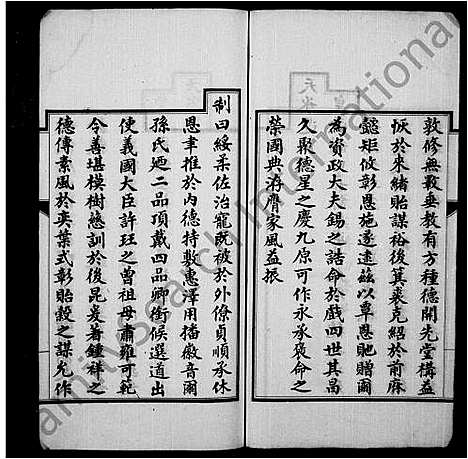 敦修無斁垂教有方種德開先堂構益
恢於來緒貽謀裕後箕裘克紹於前麻
懿矩攸彰恩施遂逮茲以覃恩貤贈爾
為資政大夫錫之誥命於戲四世其昌
久聚德星之慶九原可作永承褒命之
榮國典洊膺家風益振
制曰綏柔佐治寵既被於外僚貞順承休
恩聿推於內德特敷惠澤用播徽音爾
孫氏廼二品頂戴四品卿銜候選道出
使義國大臣許珏之曾祖母肅雍可範
令善堪模樹懿訓於後昆爰著鍾祥之
德傳素風於奕葉式彰貽穀之謀允作
Family Search International